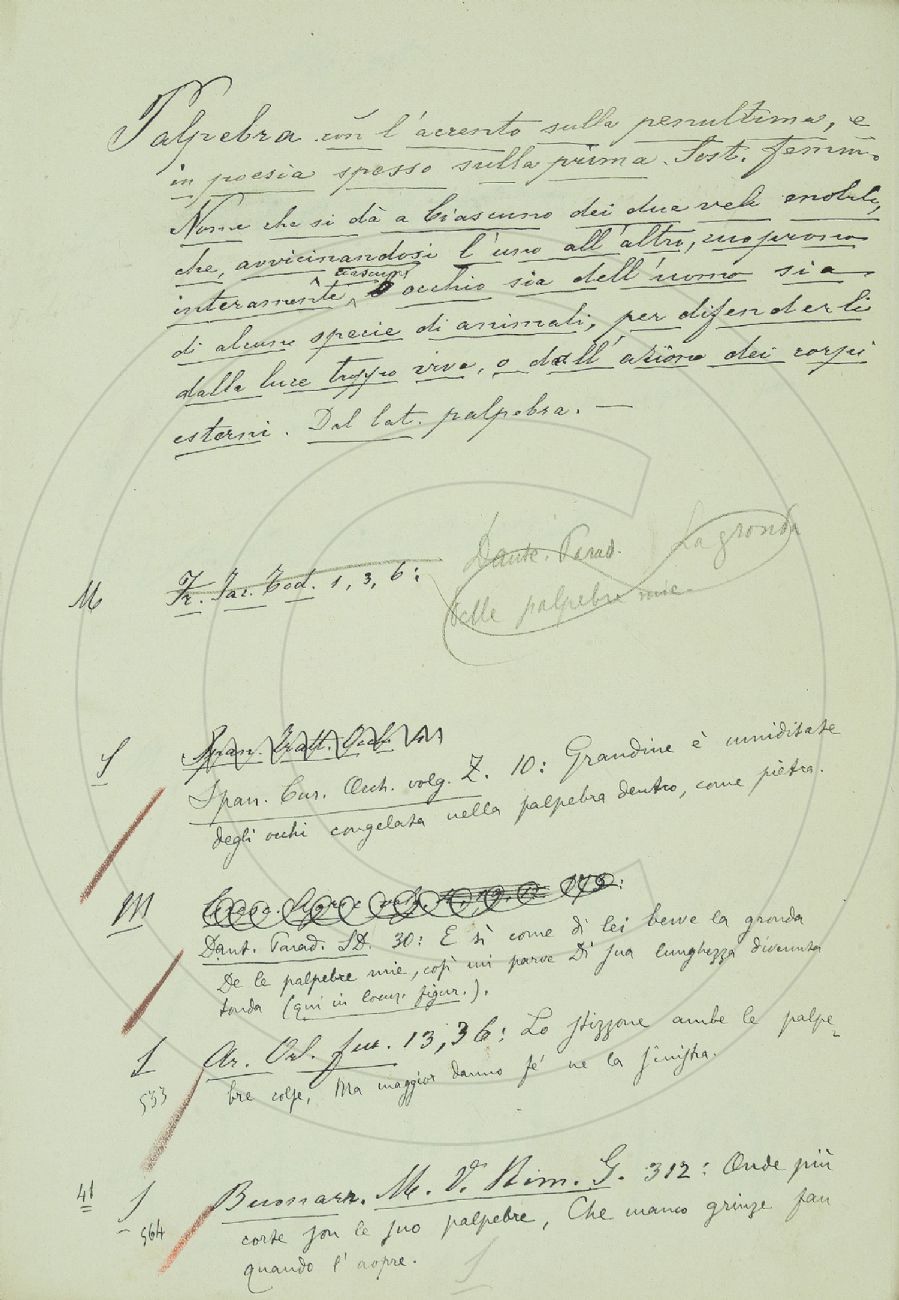 Palpebra con l'accento sulla penultima, e
in poesia spesso sulla prima. Sost. femm.
Nome che si dà a Ciascuno dei due veli mobili,
che, avvicinandosi l'uno all'altro, cuoprono
interamente ciascun occhio sia dell'uomo sia
di alcune specie di animali, per difenderli
dalla luce troppo viva, o dall'azione dei corpi
esterni. Dal lat. palpebra. —
Dante. Parad. La gronda
M Fr. Iac. Tod. 1, 3, 6:
delle palpebre mie.
S
Span. Cur. Occh. volg. Z. 10: Grandine è umiditate
degli occhi congelata nella palpebra dentro, come pietra.
M
Dant. Parad. SD. 30: E sì come di lei bevve la gronda
De le palpebre mie, così mi parve Di sua lunghezza divenuta
tonda (qui in locuz. figur.).
S Ar. Orl. fur. 13, 36: Lo stizzone ambe le palpe-
533 bre colse, Ma maggior danno fé ne la sinistra.
41 S Buonarr. M. V. Rim. G. 312: Onde più
564 corte son le suo palpebre, Che manco grinze fan
quando l'aopre.
S